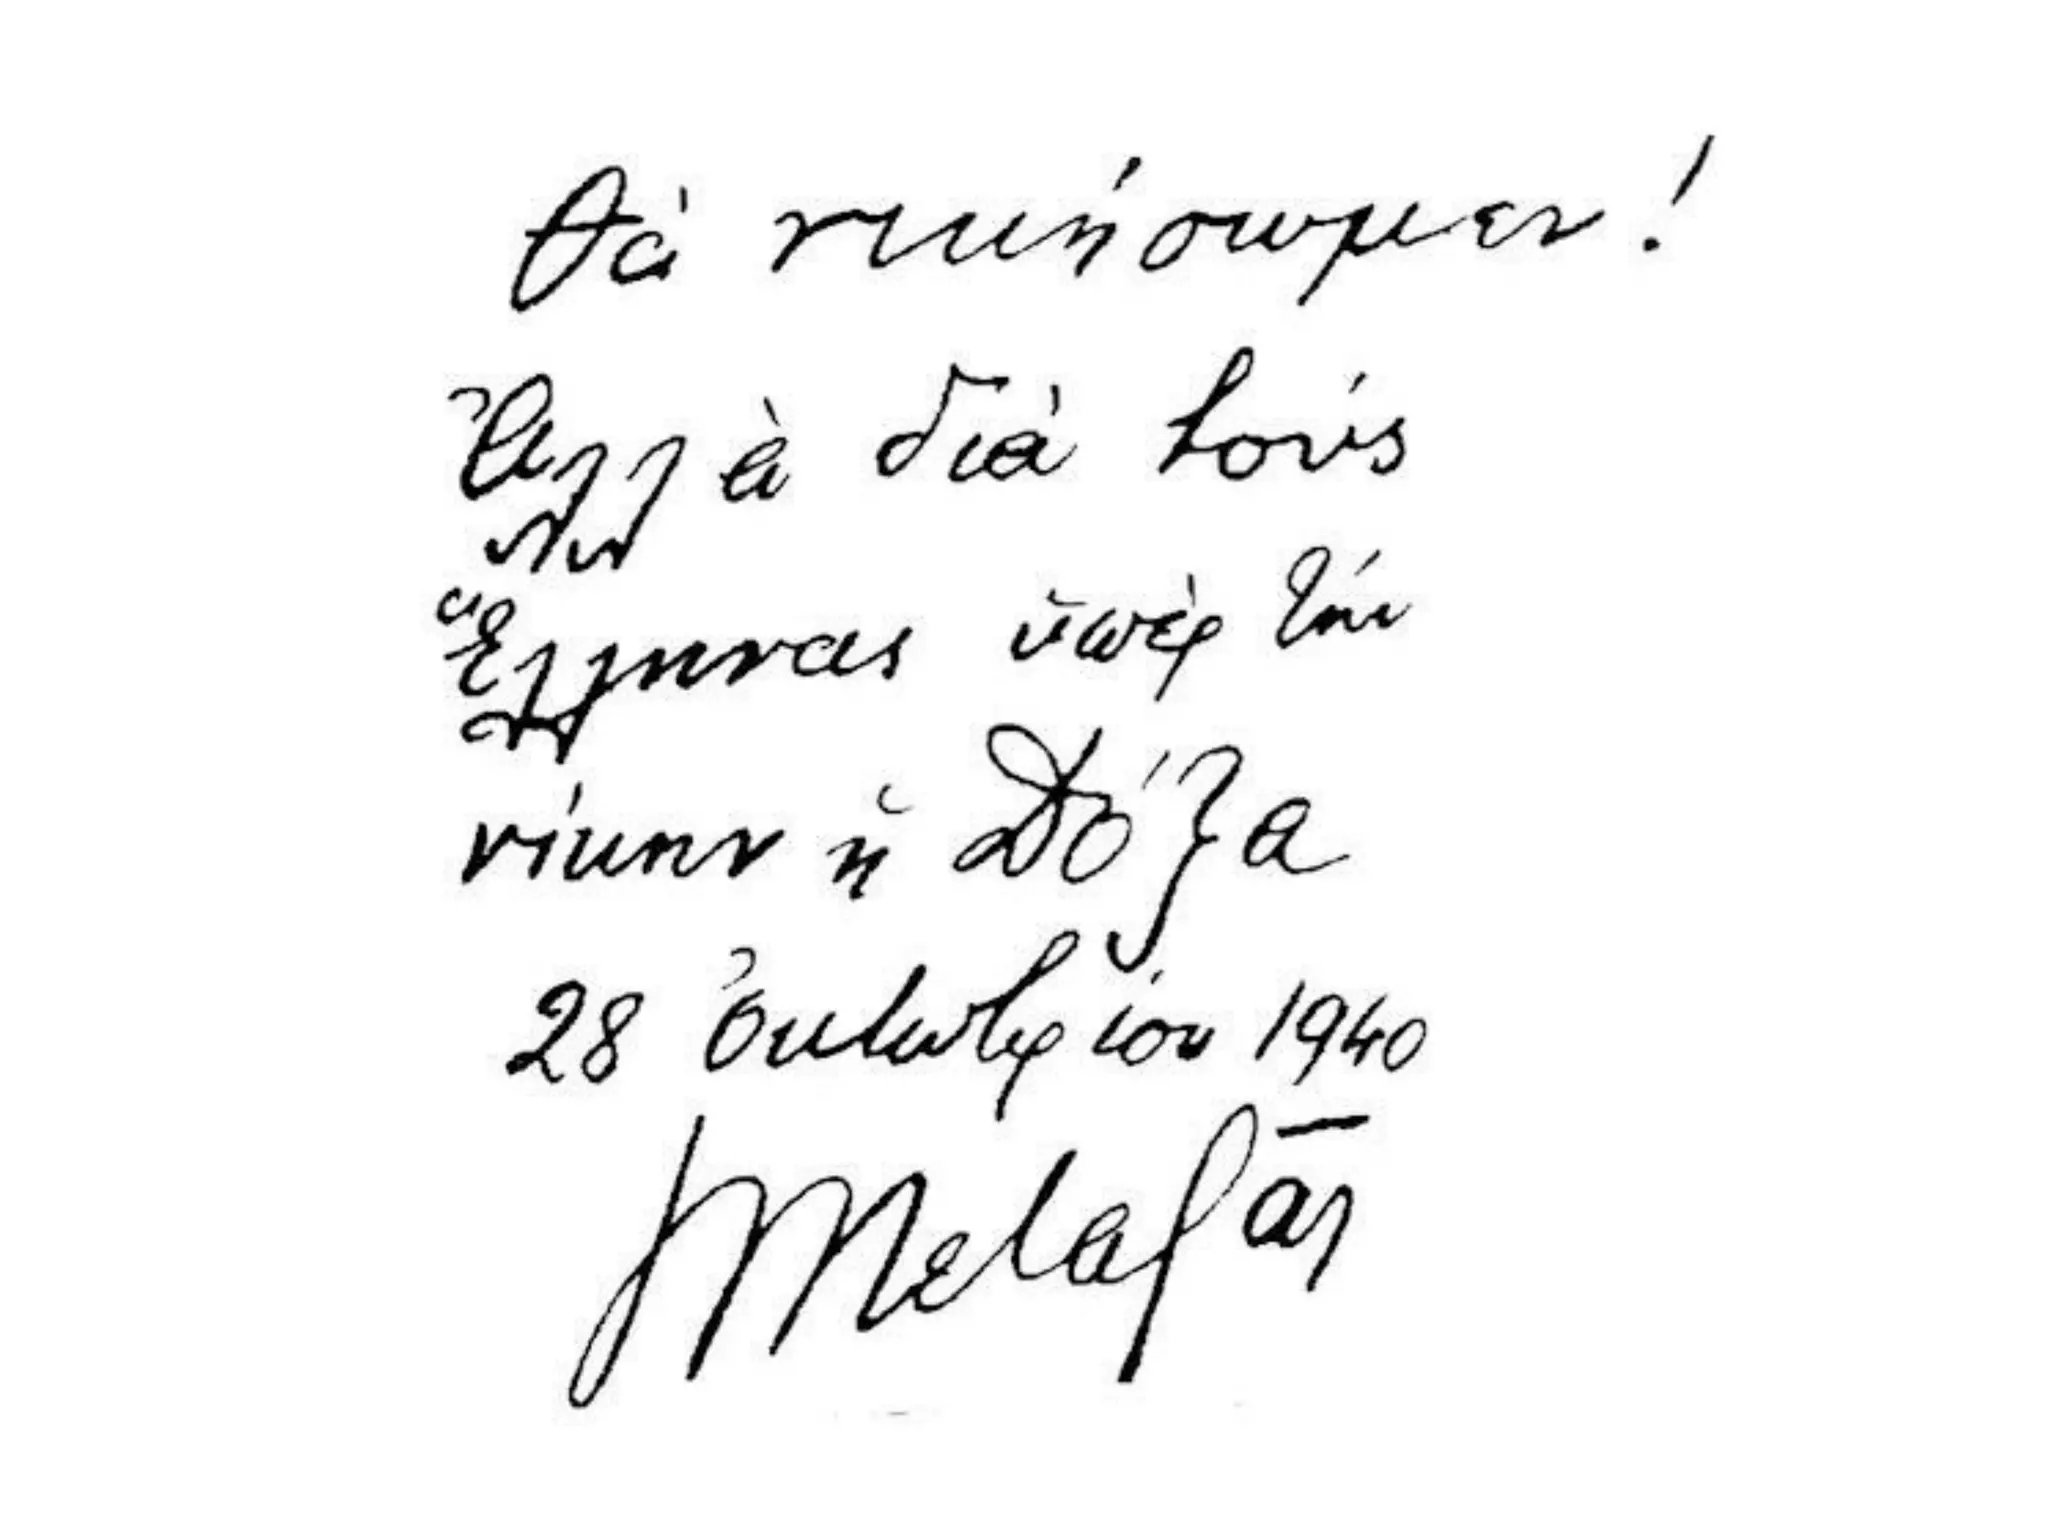 Θὰ νικήσωμεν!
Ἀλλὰ διὰ τούς
Ἕλληνας ὑπὲρ τήν
νίκην ἡ Δόξα
28 Ὀκτωβρίου 1940
Μεταξᾶς